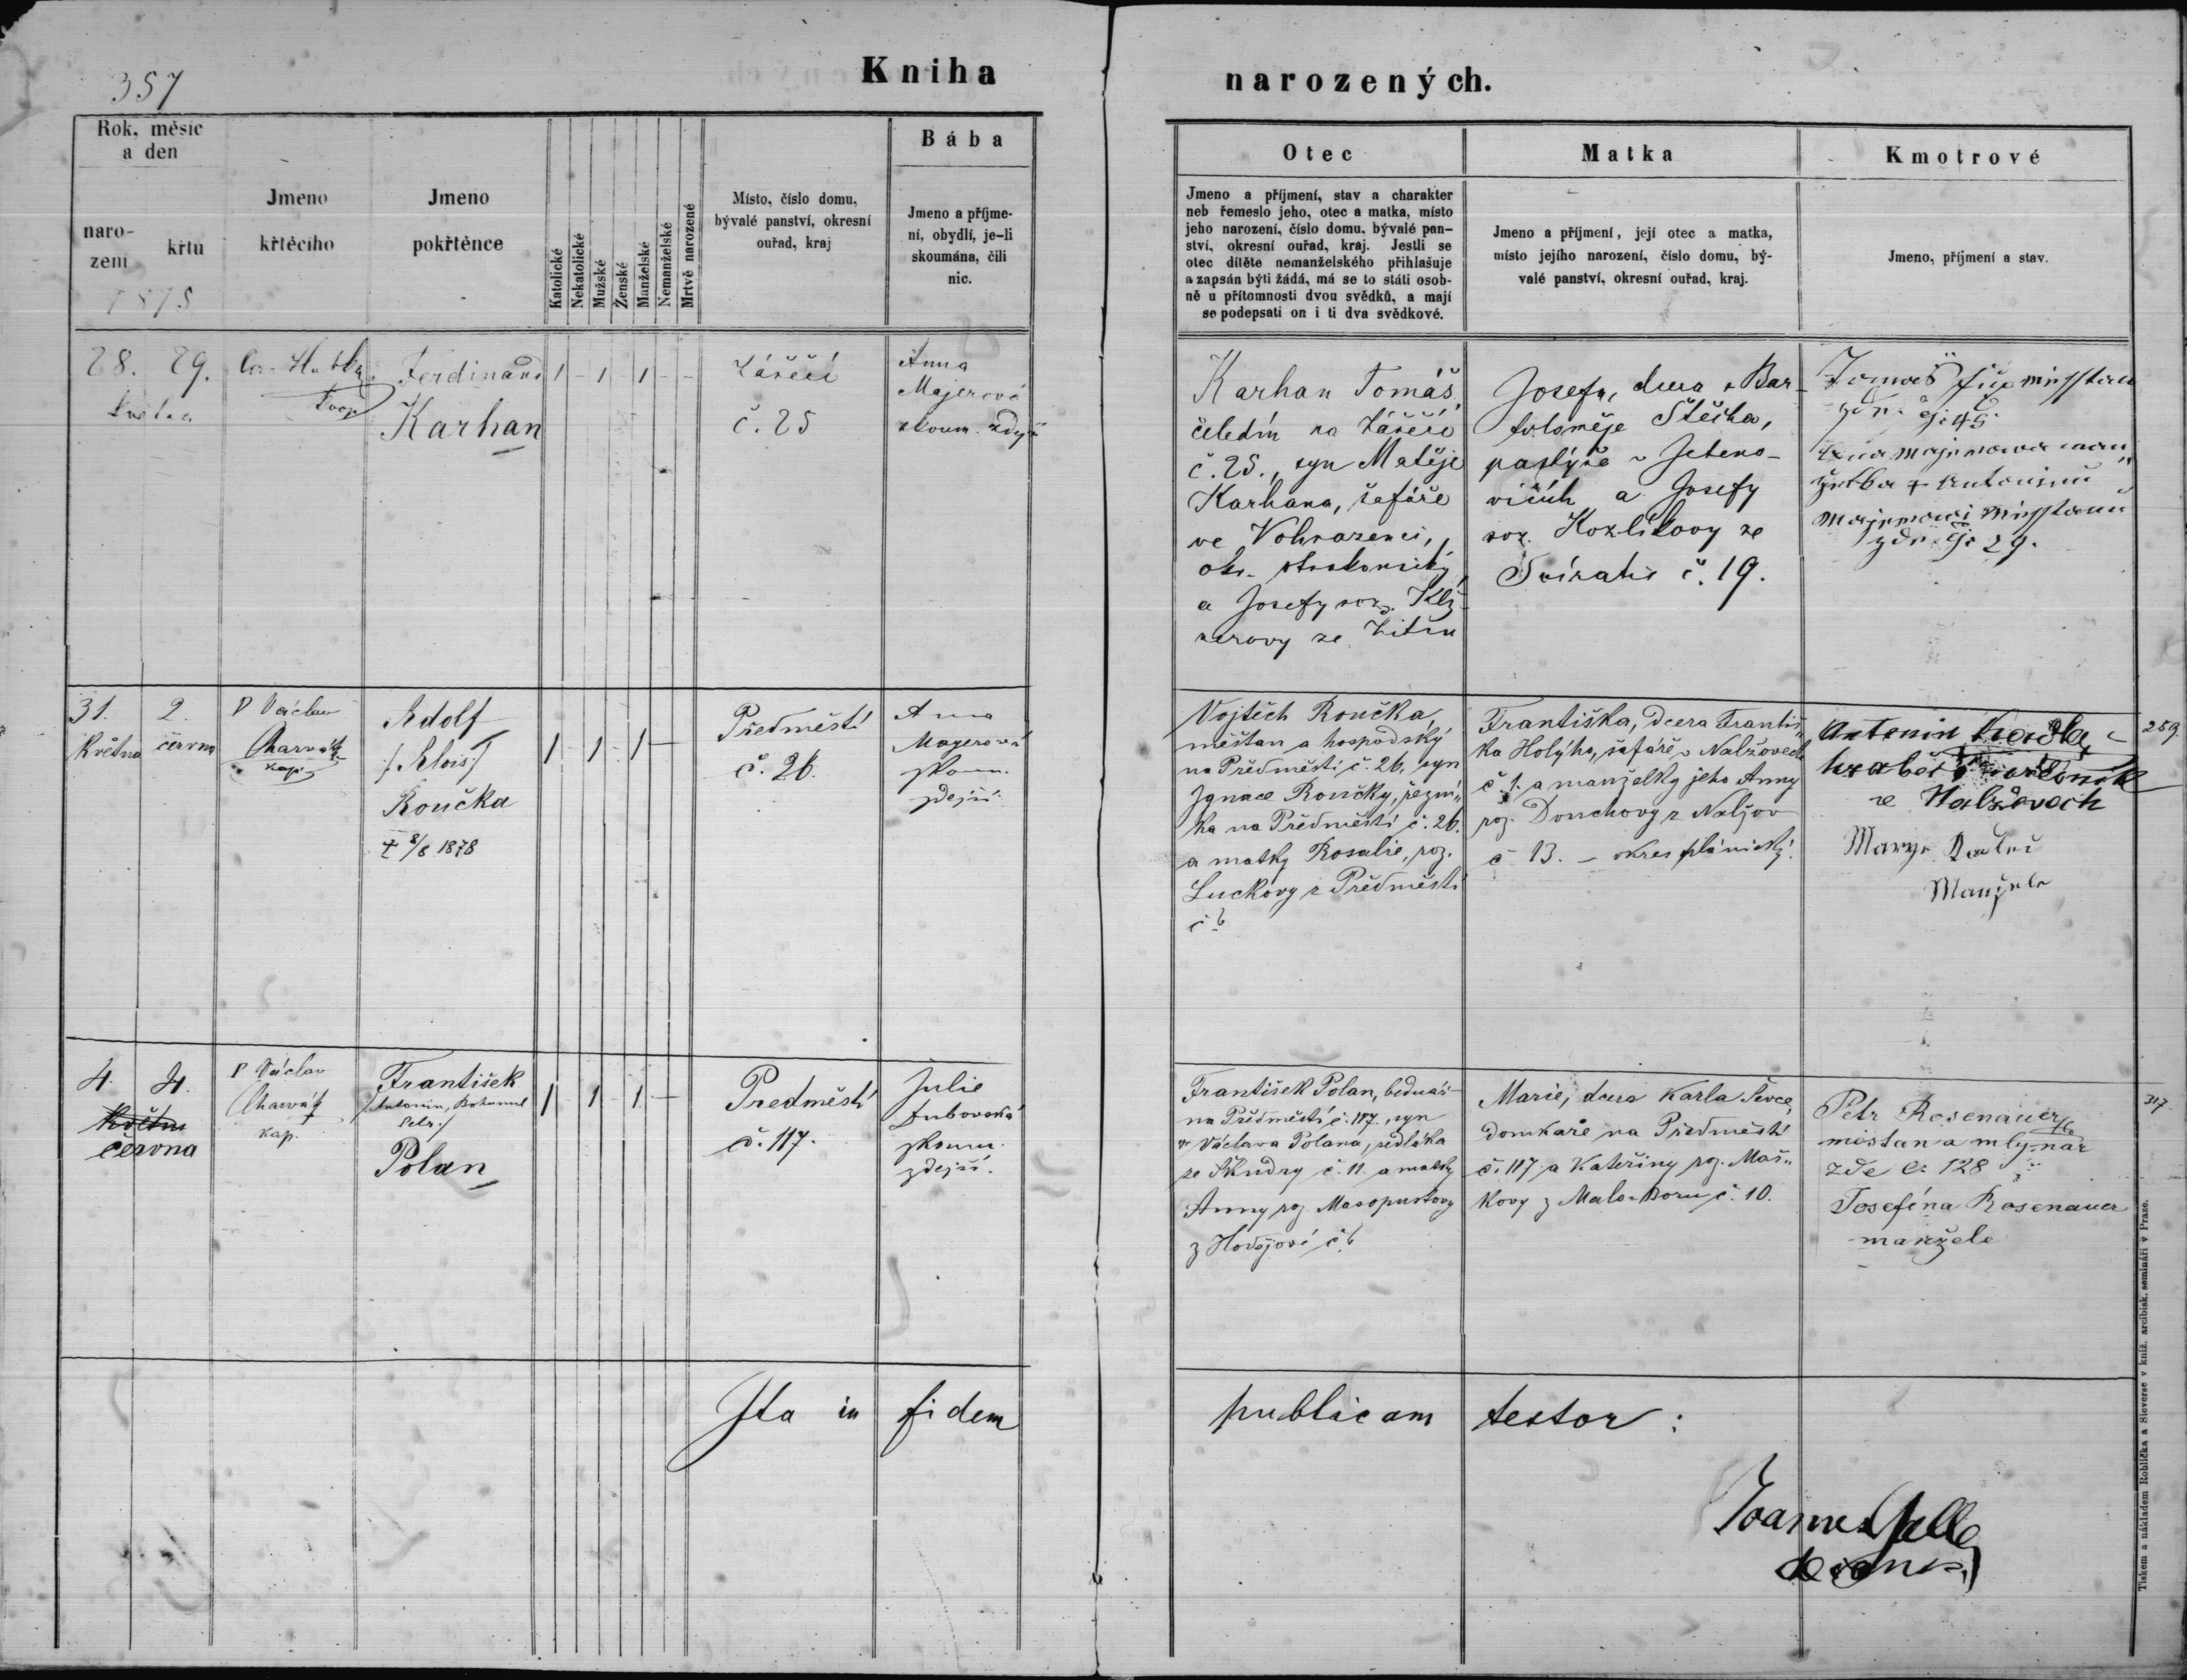 357
Kniha
narozených.
Rok, měsíc
a den
naro-
zení
křtu
1878
Jmeno
křtěcího
Jmeno
pokřtěnce
Katolické
Nekatolické
Mužské
Ženské
Manželské
Nemanželské
Mrtvě narozené
Místo, číslo domu,
bývalé panství, okresní
ouřad, kraj
Bába
Jmeno a příjme-
ní, obydlí, je-li
skoumána, čili
nic.
Otec
Jmeno a příjmení, stav a charakter
neb řemeslo jeho, otec a matka, místo
jeho narození, číslo domu, bývalé pan-
ství, okresní ouřad, kraj. Jestli se
otec dítěte nemanželského přihlašuje
a zapsán býti žádá, má se to státi osob-
ně u přítomnosti dvou svědků, a mají
se podepsati on i ti dva svědkové.
Matka
Jmeno a příjmení, její otec a matka,
místo jejího narození, číslo domu, bý-
valé panství, okresní ouřad, kraj.
Kmotrové
Jmeno, příjmení a stav.
28. 29.
května
kap
Ferdinand
Karhan
1 - 1 1 - -
Zářečí
č. 25
Anna
Majerová
skoum. zdejší
Karhan Tomáš,
čeledín na Zářečí
č. 25., syn Matěje
Karhana, šafáře
ve Vohrazenci,
okr. strakonický,
a Josefy roz.
ze
Josefa, dcera Bar-
toloměje Štěcha,
pastýře
a Josefy
roz. Kozlíkovy ze
Svíratic č. 19.
Tomáš
45
29.
31.
května
2.
června
P Václav
Charvát
kap.
Adolf
/: Alois :/
Roučka
† 8/8 1878
1 - 1 - 1 -
Předměstí
č. 26.
Anna
Mayerová
skoum.
zdejší
Vojtěch Roučka,
měštan a hospodský
na Předměstí č. 26, syn
Ignace Roučky, řezní„
ka na Předměstí č. 26.
a matky Rosalie, roz.
Luckovy z Předměstí
č 6
Františka, dcera Františ„
ka Holýho, šafáře v Nalžovech
č. 1. a manželky jeho Anny
roz. Douchovy z Nalžov
č 13. – okres plánický.
Antonin
v Nalžovech
Marye
Manžele
259.
4. 4.
května
června
P Václav
Charvát
kap.
František
/Antonin, Bohumil
Petr:/
Polan
1 - 1 - 1 -
Předměstí
č. 117.
Julie
Dubovská
skoum.
zdejší.
František Polan, bednář
na Předměstí č. 117., syn
Václava Polana, sedláka
ze č. 11. a matky
Anny roz Masopustovy
z č 6
Marie, dcera Karla Ševce,
domkaře na Předměstí
č. 117 a Kateřiny roz. Maš„
kovy z Malo-Boru č. 10.
Petr Rosenauer
městan a mlynář
zde č: 128
Josefína Rosenauer
manžele
317
Ita in fidem publicam testor:
Joannes
Tiskem a nákladem Rohlíčka a Sieverse v kníž. arcibisk. semináři v Praze.